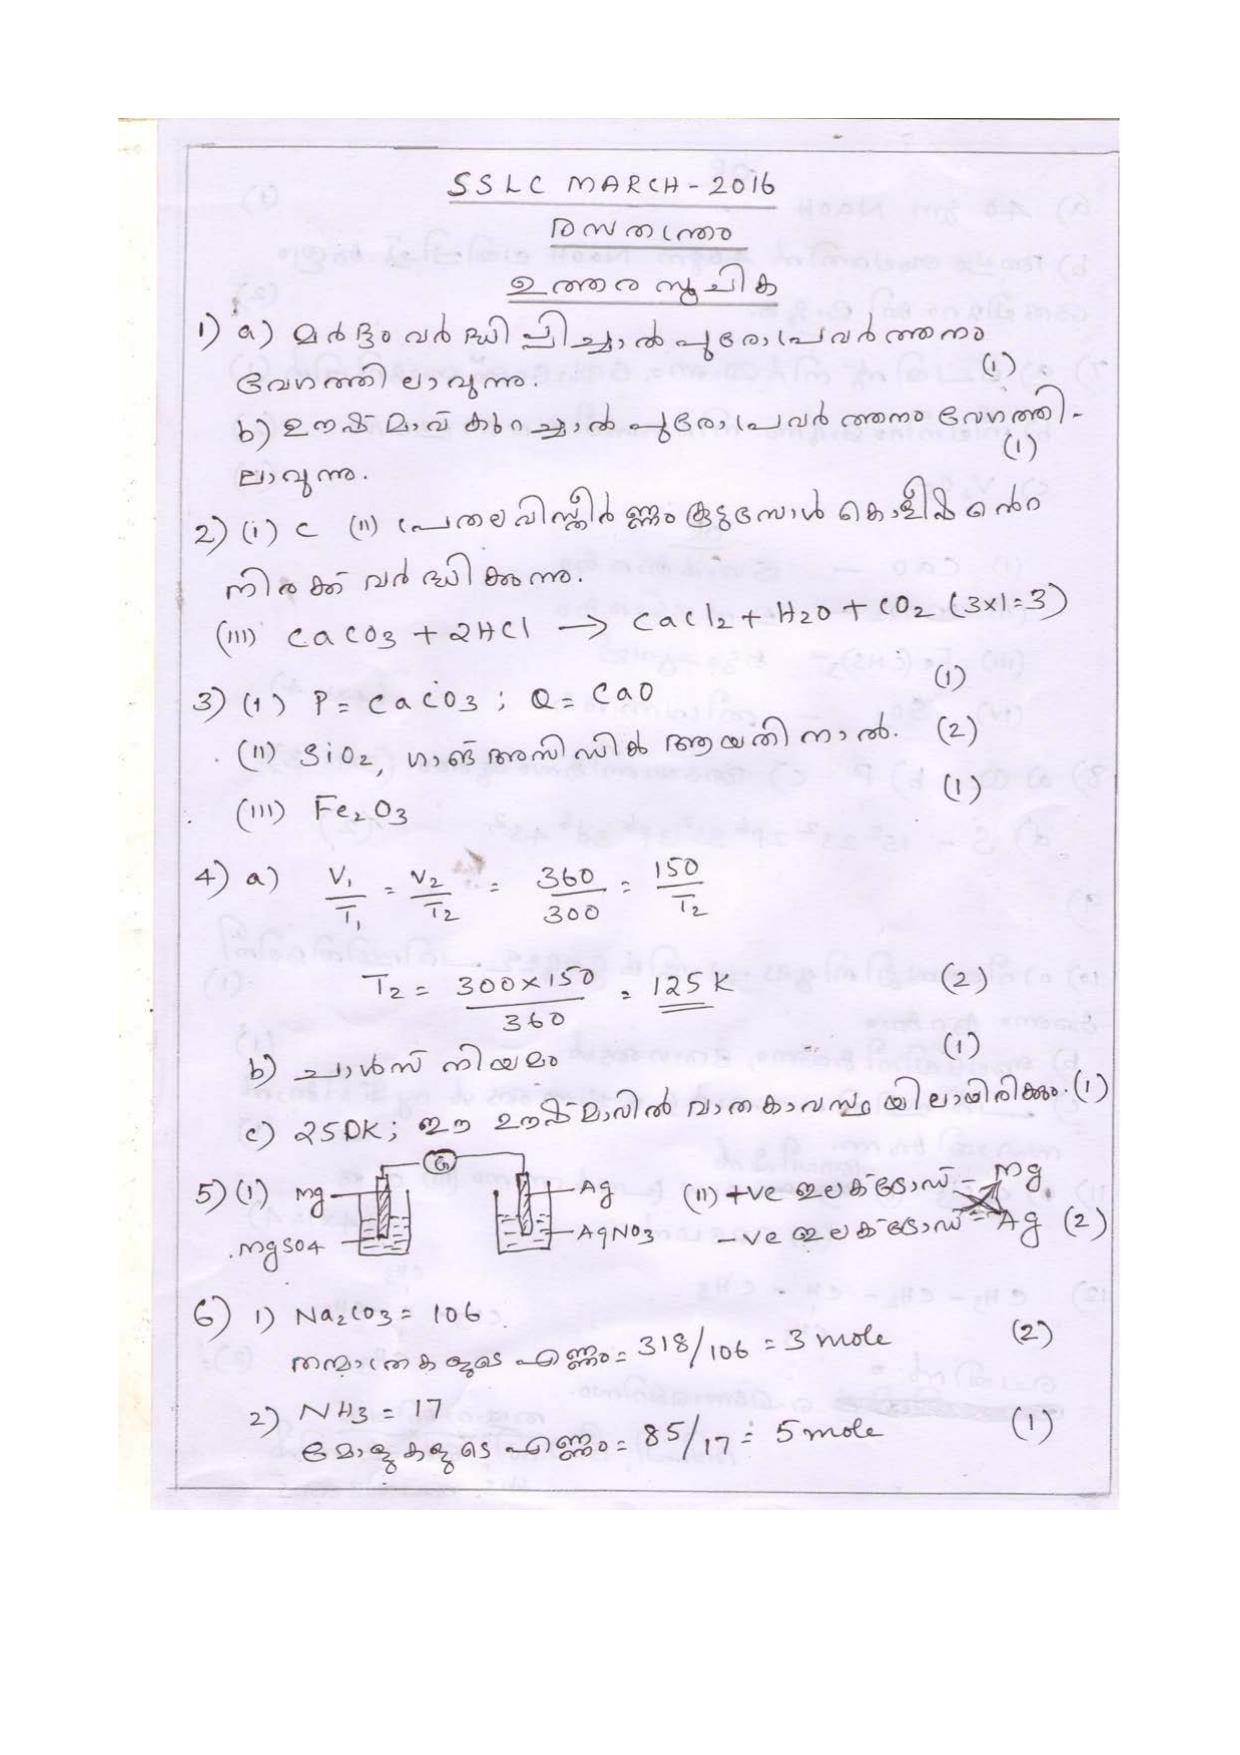 SSLC MARCH - 2016
രസതന്ത്രം
ഉത്തര സൂചിക
1) a) മർദ്ദം വർദ്ധിപ്പിച്ചാൽ പുരോപ്രവർത്തനം
വേഗത്തിലാവുന്നു. (1)
b) ഊഷ്മാവ് കുറച്ചാൽ പുരോപ്രവർത്തനം വേഗത്തി-
ലാവുന്നു. (1)
2) (i) C (ii) പ്രതലവിസ്തീർണ്ണം കൂടുമ്പോൾ കൊളീഷന്റെ
നിരക്ക് വർദ്ധിക്കുന്നു.
(iii) CaCO3 + 2HCl → CaCl2 + H2O + CO2 (3x1=3)
3) (i) P = CaCO3 ; Q = CaO (1)
(ii) SiO2, ഗാങ് അസിഡിക് ആയതിനാൽ. (2)
(iii) Fe2O3 (1)
4) a) V1/T1 = V2/T2 = 360/300 = 150/T2
T2 = 300x150/360 = 125 K (2)
b) ചാൾസ് നിയമം (1)
c) 250K ; ഈ ഊഷ്മാവിൽ വാതകാവസ്ഥയിലായിരിക്കും. (1)
5) (i) Mg G Ag (ii) +ve ഇലക്ട്രോഡ് - Mg
MgSO4 AgNO3 -ve ഇലക്ട്രോഡ് = Ag (2)
6) 1) Na2CO3 = 106
തന്മാത്രകളുടെ എണ്ണം = 318/106 = 3 mole (2)
2) NH3 = 17
മോളുകളുടെ എണ്ണം = 85/17 = 5 mole (1)